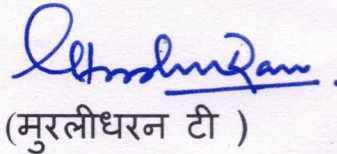 (मुरलीधरन टी )